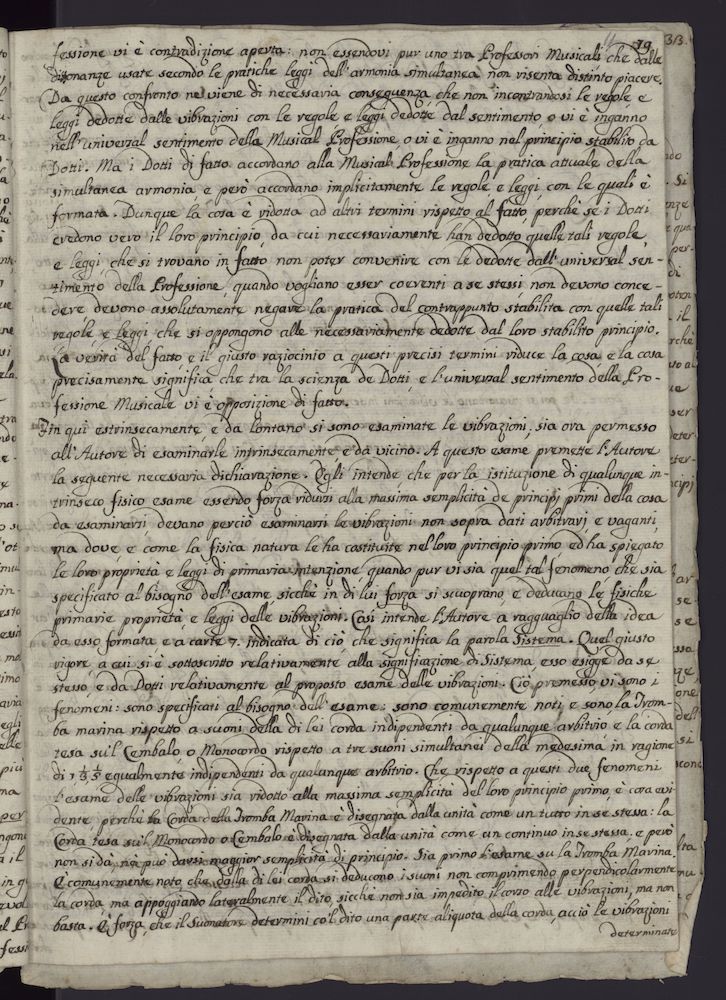 19. 313.
fessione vi è contradizione aperta: non essendovi pur uno tra Professori Musicali che dalle
dissonanze usate secondo le pratiche leggi dell'armonia simultanea non risenta distinto piacere.
Da questo confronto ne viene di necessaria conseguenza, che non incontrandosi le regole e
leggi dedotte dalle vibrazioni con le regole e leggi dedotte dal sentimento o vi è inganno
nell'universal sentimento della Musical Professione, o vi è inganno nel principio stabilito da
Dotti. Ma i Dotti di fatto accordano alla Musical Professione la pratica attuale della
simultanea armonia, e però accordano implicitamente le regole e leggi, con le quali è
formata. Dunque la cosa è ridotta ad altri termini rispetto al fatto, perchè se i Dotti
credono vero il loro principio, da cui necessariamente han dedotto quelle tali regole,
e leggi che si trovano in fatto non poter convenire con le dedotte dall'universal sen-
timento della Professione, quando vogliano esser coerenti a se stessi non devono conce-
dere devono assolutamente negare la pratica del contrappunto stabilita con quelle tali
regole e leggi che si oppongono alle necessariamente dedotte dal loro stabilito principio.
La verità del fatto, e il giusto raziocinio a questi precisi termini riduce la cosa, e la cosa
precisamente significa che tra la scienza de Dotti, e l'universal sentimento della Pro-
fessione Musicale vi è opposizione di fatto.
Fin qui estrinsecamente, e da lontano si sono esaminate le vibrazioni, sia ora permesso
all'Autore di esaminarle intrinsecamente e da vicino. A questo esame premette l'Autore
la seguente necessaria dichiarazione. Egli intende che per la istituzione di qualunque in-
trinseco fisico esame essendo forza ridursi alla massima semplicità de principj primi della cosa
da esaminarsi, devano perciò esaminarsi le vibrazioni non sopra dati arbitrarj e vaganti,
ma dove, e come la fisica natura le ha costituite nel loro principio primo, ed ha spiegato
le loro proprietà e leggi di primaria intenzione, quando pur vi sia quel tal fenomeno, che sia
specificato al bisogno dell'esame, sicchè in di lui forza si scuoprano, e deducano le fisiche
primarie proprietà, e leggi delle vibrazioni. Così intende l'Autore a ragguaglio della idea
da esso formata e a carte 7. indicata di ciò, che significa la parola Sistema. Quel giusto
rigore, a cui si è sottoscritto relativamente alla significazione di Sistema esso esigge da se
stesso, e da Dotti relativamente al proposto esame delle vibrazioni. Ciò premesso vi sono i
fenomeni: sono specificati al bisogno dell'esame: sono comunemente noti, e sono la Trom-
ba marina rispetto a suoni della di lei corda indipendenti da qualunque arbitrio, e la corda
tesa su'l Cembalo, o Monocordo rispetto a tre suoni simultanei della medesima in ragione
di 1 1/3 1/5 egualmente indipendenti da qualunque arbitrio. Che rispetto a questi due fenomeni
l'esame delle vibrazioni sia ridotto alla massima semplicità del loro principio primo, è cosa evi-
dente, perchè la Corda della Tromba Marina è disegnata dalla unità come un tutto in se stessa: la
Corda tesa su'l Monocordo o Cembalo è disegnata dalla unità come un continuo in se stessa, e però
non si dà, nè può darsi maggior semplicità di principio. Sia primo l'esame su la Tromba Marina.
È comunemente noto, che dalla di lei corda si deducono i suoni non comprimendo perpendicolarmente
la corda, ma appoggiando lateralmente il dito, sicchè non sia impedito il corso alle vibrazioni, ma non
basta. È forza, che il Suonatore determini co'l dito una parte aliquota della corda, acciò le vibrazioni
determinate